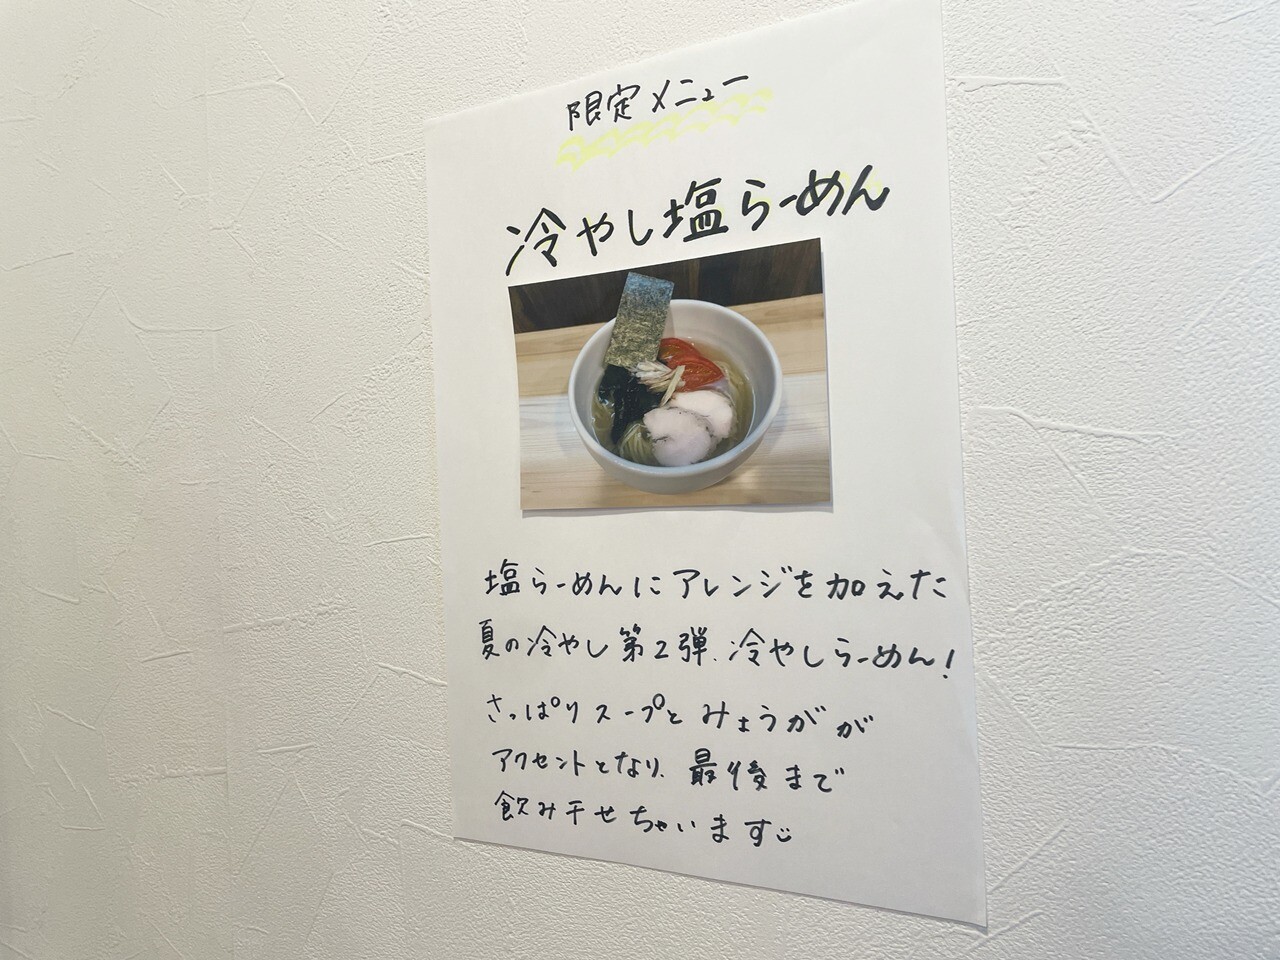 限定メニュー
冷やし塩らーめん
塩らーめんにアレンジを加えた
夏の冷やし第2弾、冷やしらーめん!
さっぱりスープとみょうがが
アクセントとなり、最後まで
飲み干せちゃいます